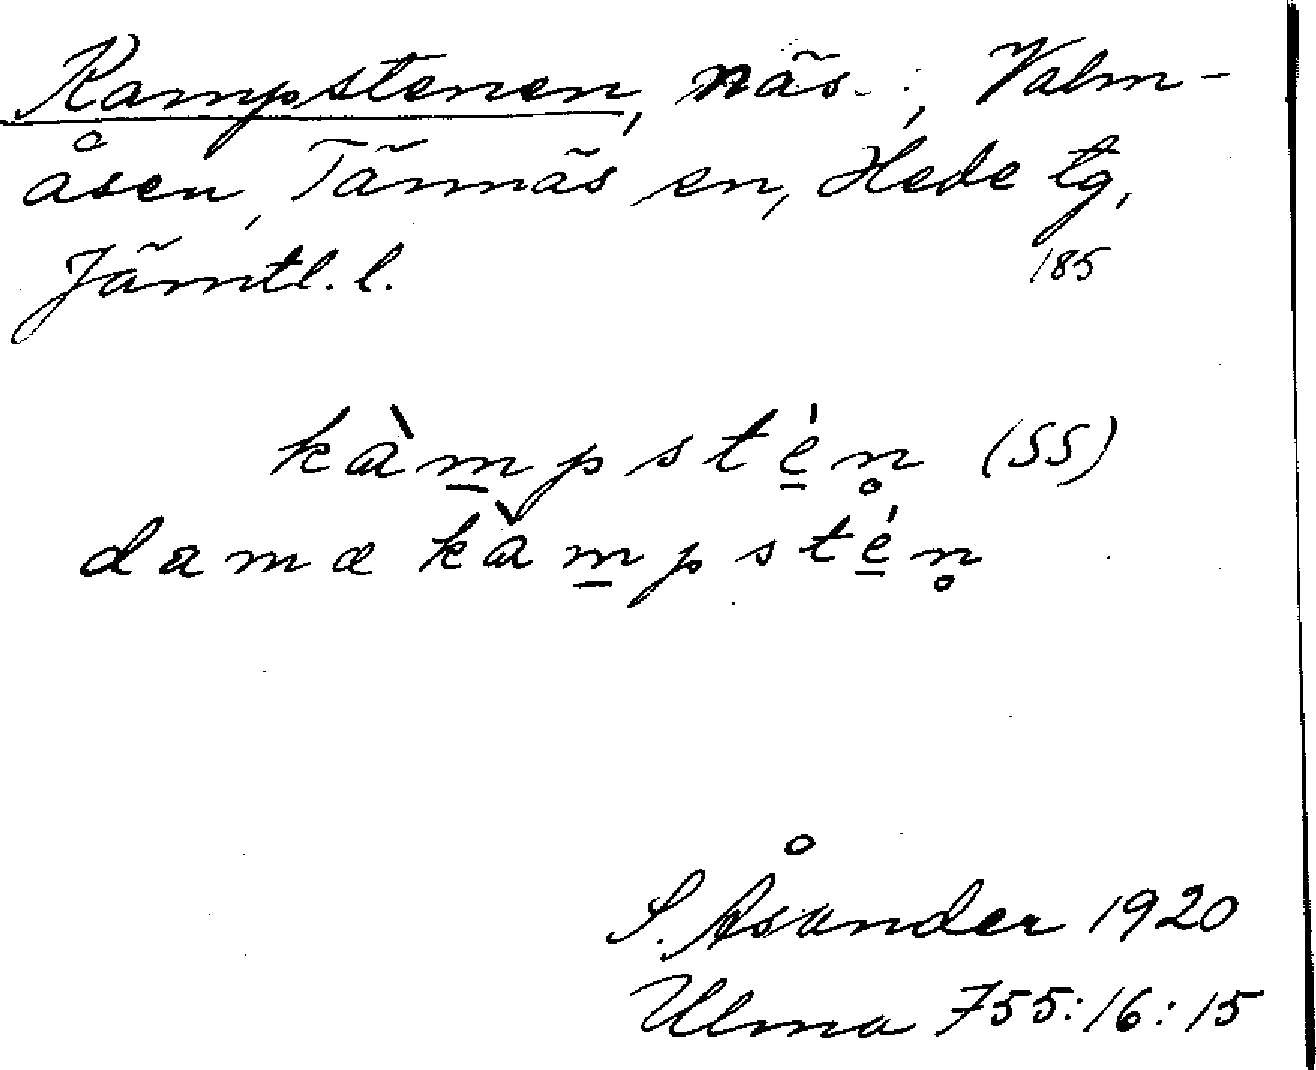 Kampstenen, näs.; Valm-
åsen, Tännäs sn, Hede tg,
Jämtl. l. 185
kàmpstén (SS)
dama kàmpstén
S. Åsander 1920
Ulma 755:16:15